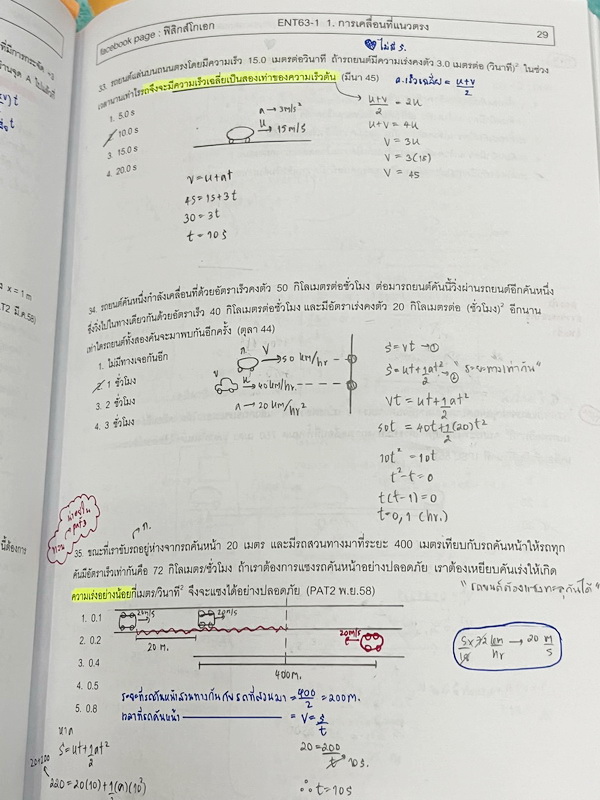 facebook page : ฟิสิกส์โกเอก
ENT63-1 1. การเคลื่อนที่แนวตรง
29
ไม่มี s.
33. รถยนต์แล่นบนถนนตรงโดยมีความเร็ว 15.0 เมตรต่อวินาที ถ้ารถยนต์มีความเร่งคงตัว 3.0 เมตรต่อ (วินาที)² ในช่วง
เวลานานเท่าไรรถจึงจะมีความเร็วเฉลี่ยเป็นสองเท่าของความเร็วต้น (มีนา 45)
ค.เร็วเฉลี่ย = u+v/2
1. 5.0 s
2. 10.0 s
3. 15.0 s
4. 20.0 s
a → 3m/s²
u → 15m/s
v = u+at
45 = 15+3t
30 = 3t
t = 10s
u+v/2 = 2u
u+v = 4u
v = 3u
v = 3(15)
v = 45
34. รถยนต์คันหนึ่งกำลังเคลื่อนที่ด้วยอัตราเร็วคงตัว 50 กิโลเมตรต่อชั่วโมง ต่อมารถยนต์คันนี้วิ่งผ่านรถยนต์อีกคันหนึ่ง
ซึ่งวิ่งไปในทางเดียวกันด้วยอัตราเร็ว 40 กิโลเมตรต่อชั่วโมง และมีอัตราเร่งคงตัว 20 กิโลเมตรต่อ (ชั่วโมง)² อีกนาน
เท่าใดรถยนต์ทั้งสองคันจะมาพบกันอีกครั้ง (ตุลา 44)
1. ไม่มีทางเจอกันอีก
2. 1 ชั่วโมง
3. 2 ชั่วโมง
4. 3 ชั่วโมง
v → 50 km/hr
u → 40 km/hr.
a → 20 km/hr²
s = vt → ①
s = ut+1/2at² → ② "ระยะทางเท่ากัน"
vt = ut+1/2at²
50t = 40t+1/2(20)t²
10t² = 10t
t²-t=0
t(t-1)=0
t=0,1 (hr.)
35. ขณะที่เราขับรถอยู่ห่างจากรถคันหน้า 20 เมตร และมีรถสวนทางมาที่ระยะ 400 เมตรเทียบกับรถคันหน้าให้รถทุก
คันมีอัตราเร็วเท่ากันคือ 72 กิโลเมตร/ชั่วโมง ถ้าเราต้องการแซงรถคันหน้าอย่างปลอดภัย เราต้องเหยียบคันเร่งให้เกิด
ความเร่งอย่างน้อยกี่เมตร/วินาที² จึงจะแซงได้อย่างปลอดภัย (PAT2 พ.ย.58)
1. 0.1
2. 0.2
3. 0.4
4. 0.5
5. 0.8
20m/s
20m/s
20m/s
20 m.
400 m.
5x72 km/18 hr → 20 m/s
ระยะที่รถคันหน้าสวนทางกันกับรถที่สวนมา = 400/2 = 200m.
เวลาที่รถคันหน้า = v = s/t
20 = 200/t
10s.
∴ t = 10s
หา a
s = ut+1/2at²
20+200
220 = 20(10)+1/2(a)(10²)